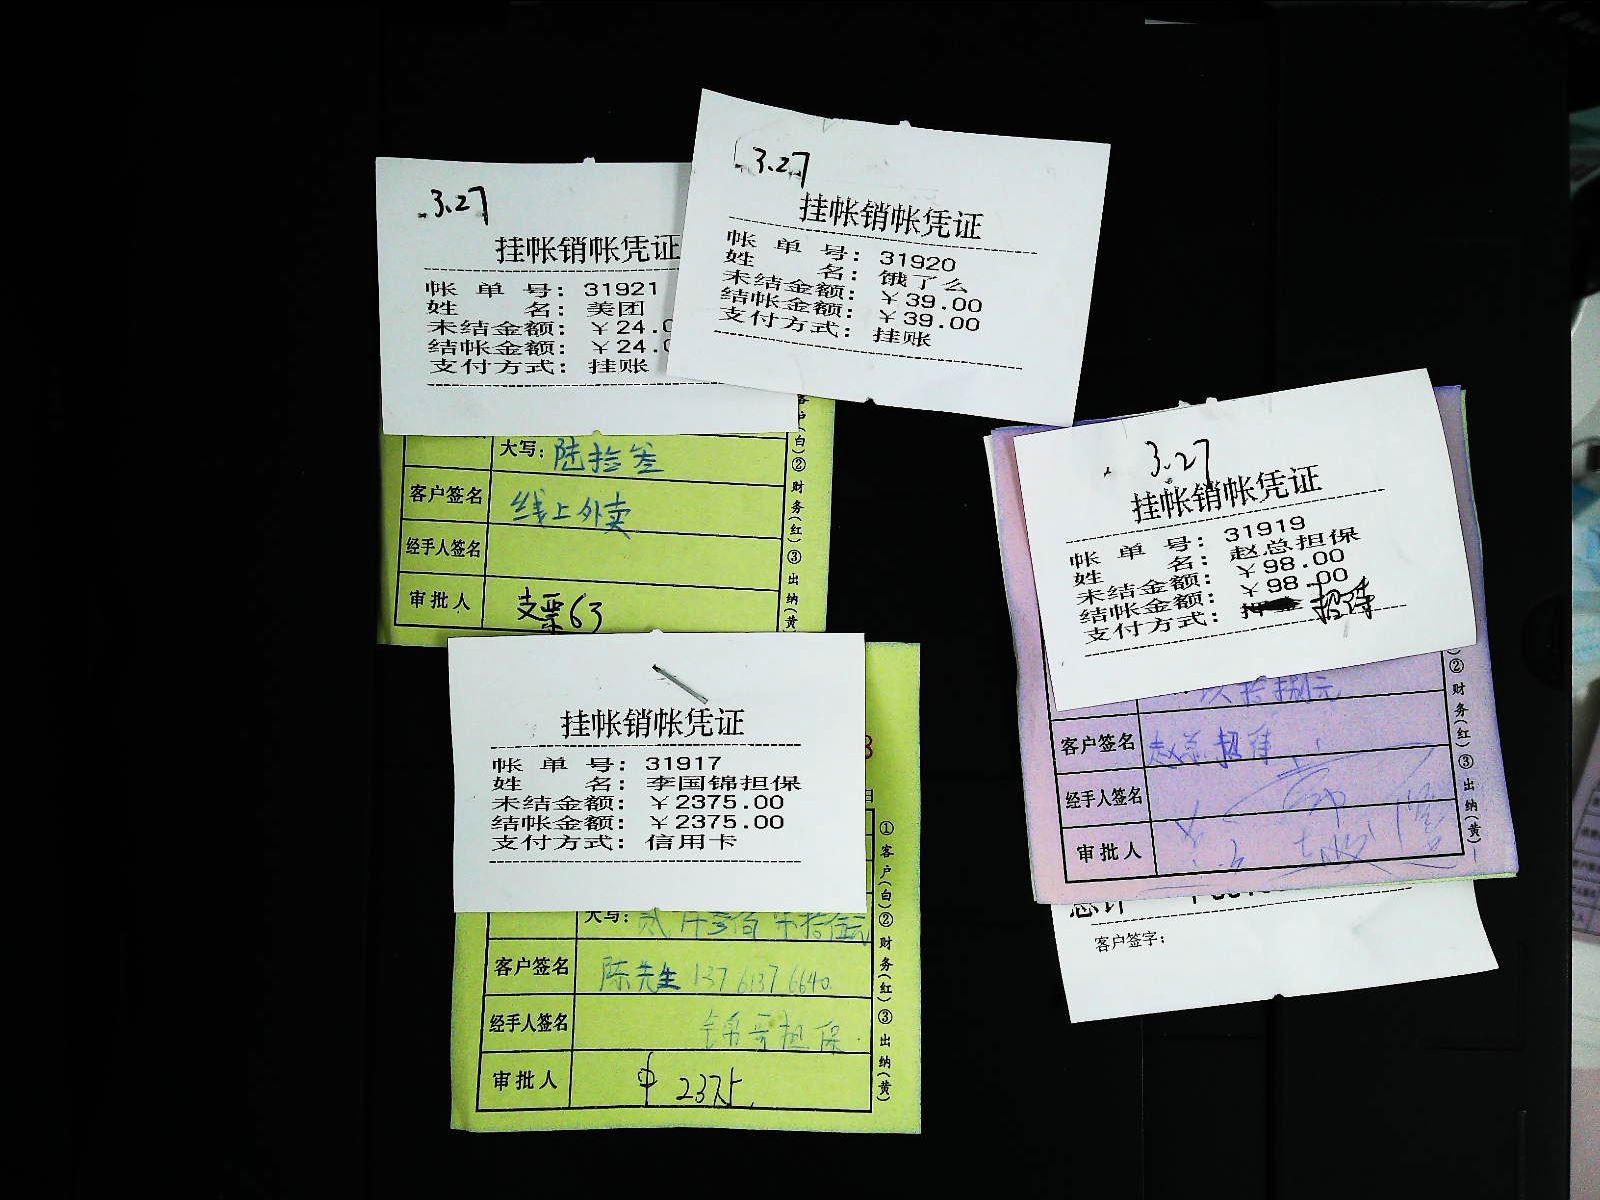 3.27
挂帐销帐凭证
帐单号：31921
姓名：美团
未结金额：￥24.0
结帐金额：￥24.0
支付方式：挂账
3.27
挂帐销帐凭证
帐单号：31920
姓名：饿了么
未结金额：￥39.00
结帐金额：￥39.00
支付方式：挂账
大写：陆拾叁
客户签名 线上外卖
经手人签名
审批人 支票63
客户(白)②财务(红)③出纳(黄)
3.27
挂帐销帐凭证
帐单号：31919
姓名：赵总担保
未结金额：￥98.00
结帐金额：￥98.00
支付方式：招待
玖拾捌元
客户签名 赵总招待
经手人签名
审批人
②财务(红)③出纳(黄)
总计
客户签字：
挂帐销帐凭证
帐单号：31917
姓名：李国锦担保
未结金额：￥2375.00
结帐金额：￥2375.00
支付方式：信用卡
大写：贰仟叁佰柒拾伍元
客户签名 陈先生 137 6137 6640
经手人签名 锦哥担保
审批人 中 2375
①客户(白)②财务(红)③出纳(黄)